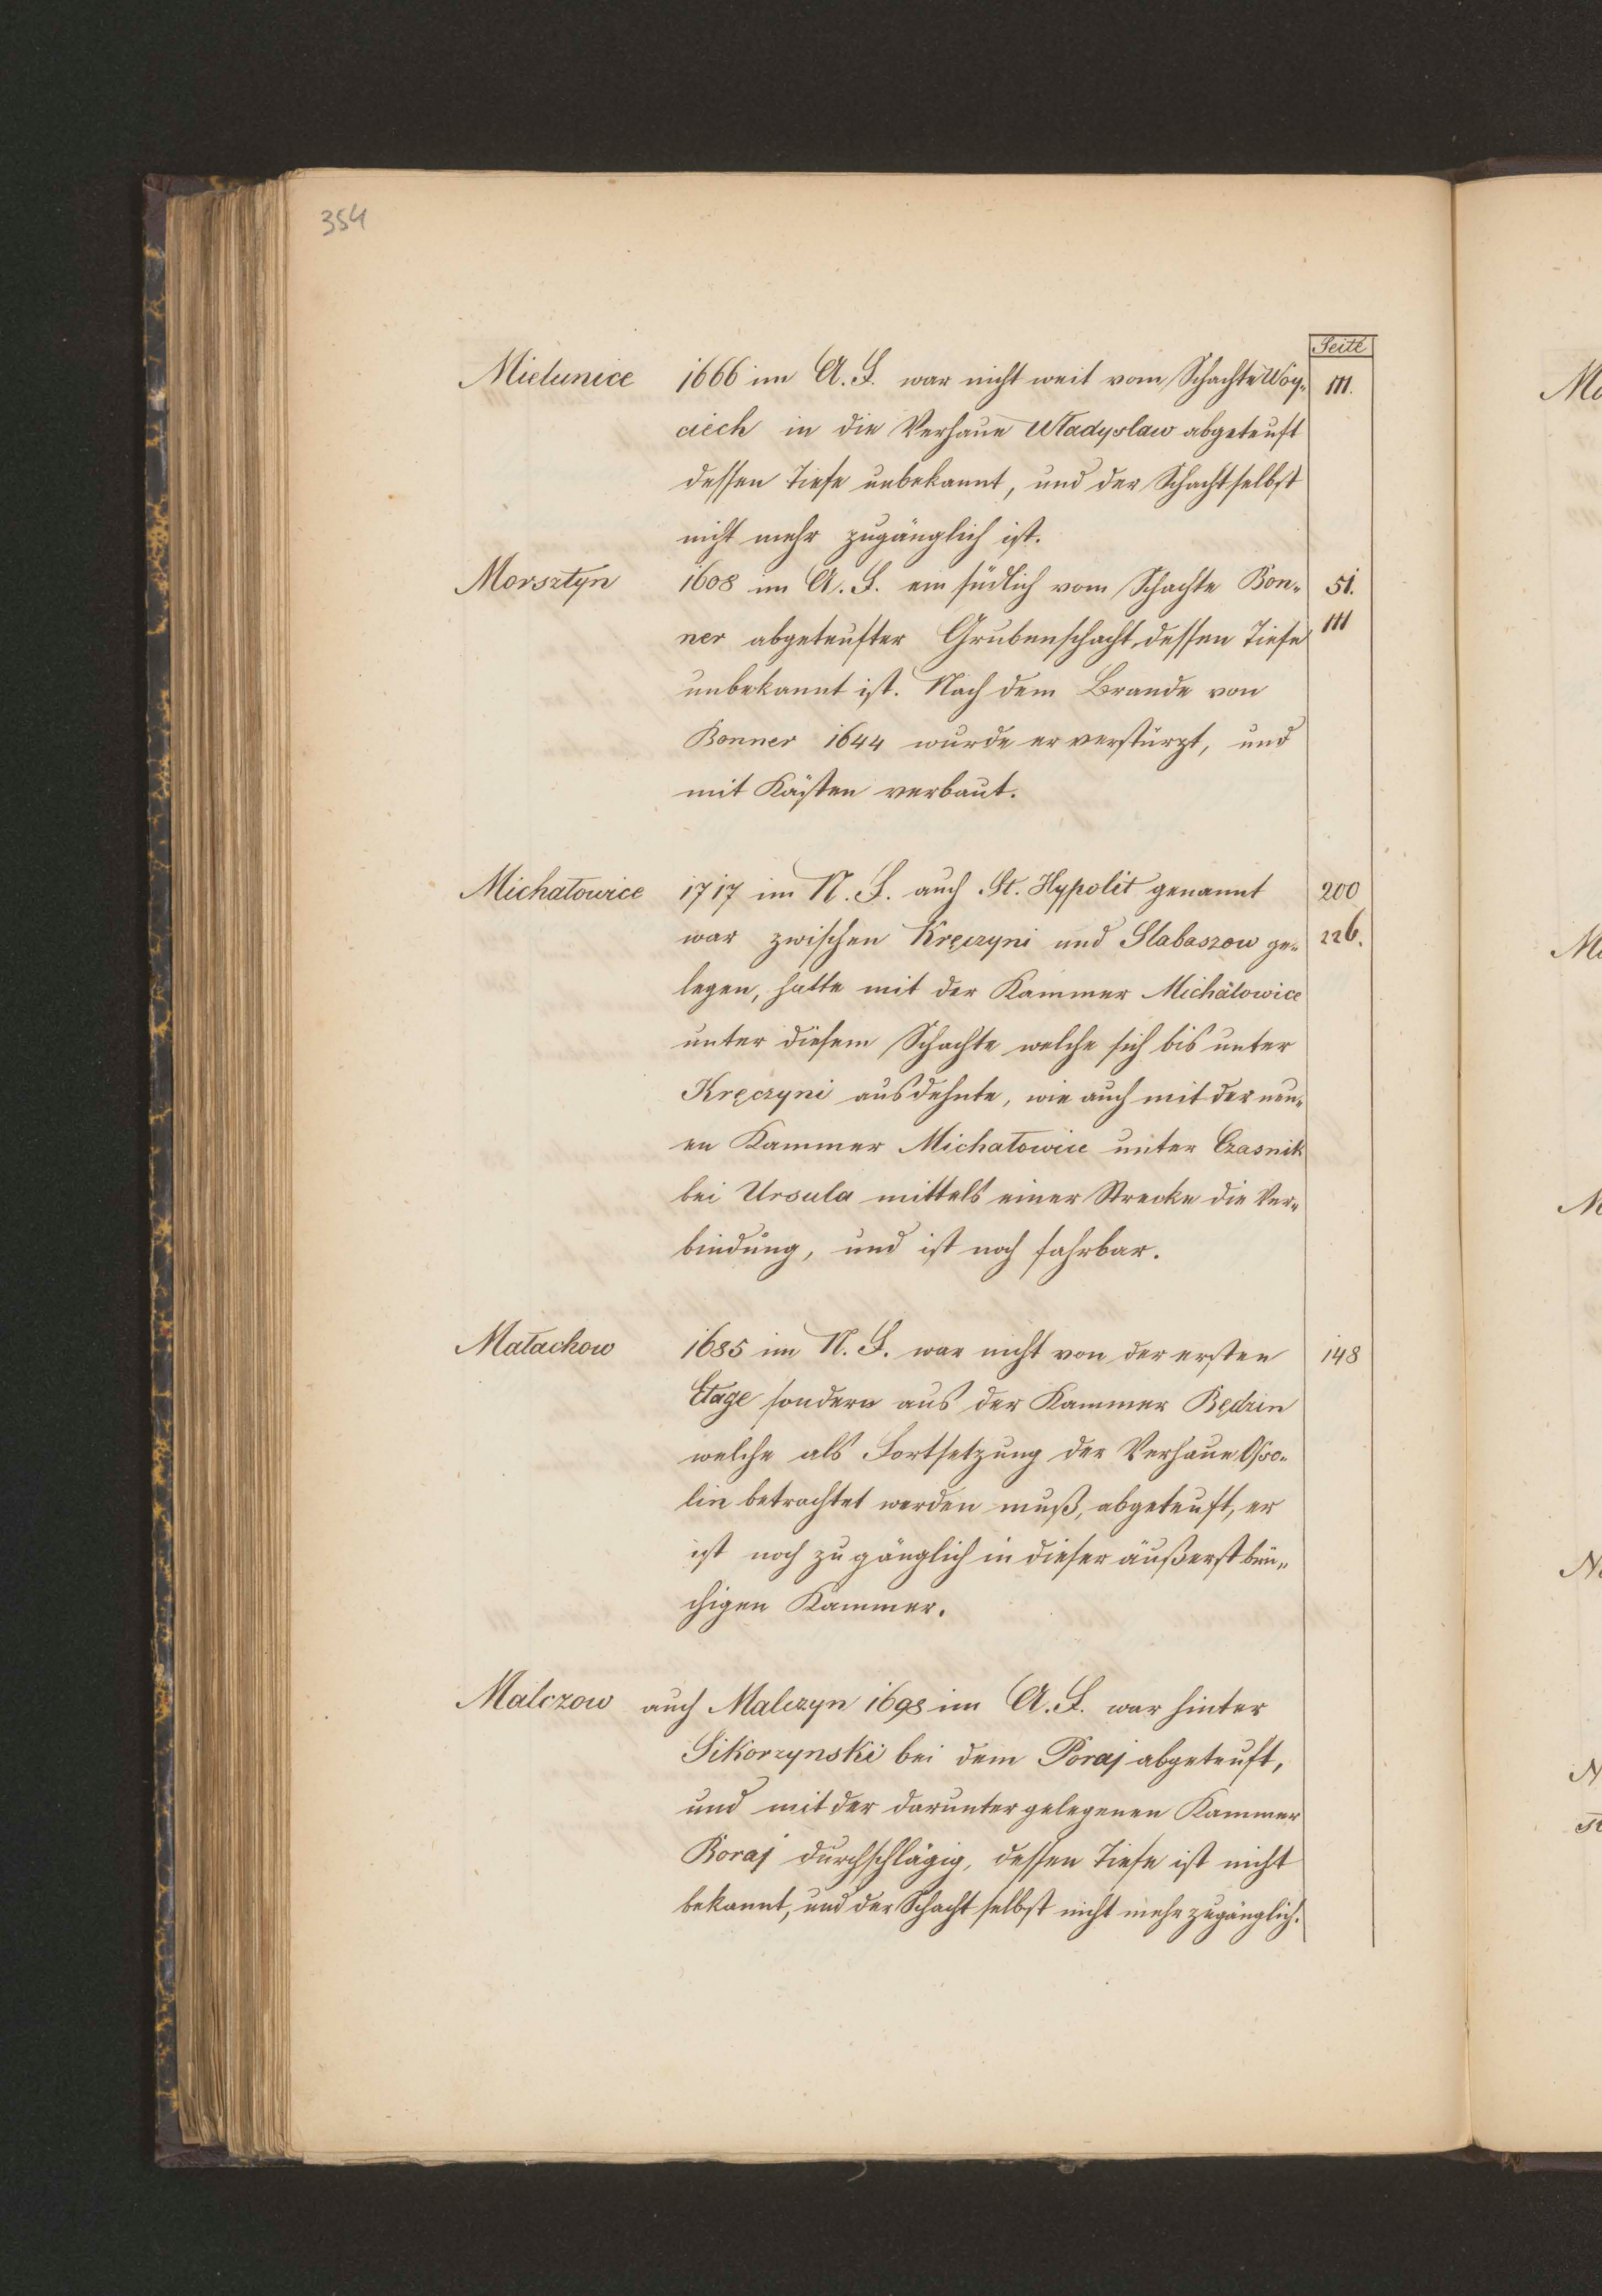 354
Seite
Mielunice 1666 im A. F. war nicht weit vom Schachte Woy- 111.
ciech in die Verhaue Władyslaw abgeteuft
dessen Tiefe unbekannt, und der Schacht selbst
nicht mehr zugänglich ist.
Morsztyn 1608 im A. F. ein südlich vom Schachte Bon- 51.
ner abgeteufter Grubenschacht, dessen Tiefe 111
unbekannt ist. Nach dem Brande von
Bonner 1644 wurde er verstürzt, und
mit Kästen verbaut.
Michałowice 1717 im N. F. auch St. Hypolit genannt 200
war zwischen Kręczyni und Slabaszow ge- 226.
legen, hatte mit der Kammer Michałowice
unter diesem Schachte welche sich bis unter
Kręczyni ausdehnte, wie auch mit der neu-
en Kammer Michałowice unter Czasnik
bei Ursula mittels einer Strecke die Ver-
bindung, und ist noch fahrbar.
Małachow 1685 im N. F. war nicht von der ersten 148
Etage sondern aus der Kammer Będzin
welche als Fortsetzung der Verhaue Osso-
lin betrachtet werden muß, abgeteuft, er
ist noch zugänglich in dieser äußerst brü-
chigen Kammer.
Malczow auch Malczyn 1698 im A. F. war hinter
Sikorzynski bei dem Poraj abgeteuft,
und mit der darunter gelegenen Kammer
Boraj durchschlägig, dessen Tiefe ist nicht
bekannt, und der Schacht selbst nicht mehr zugänglich.